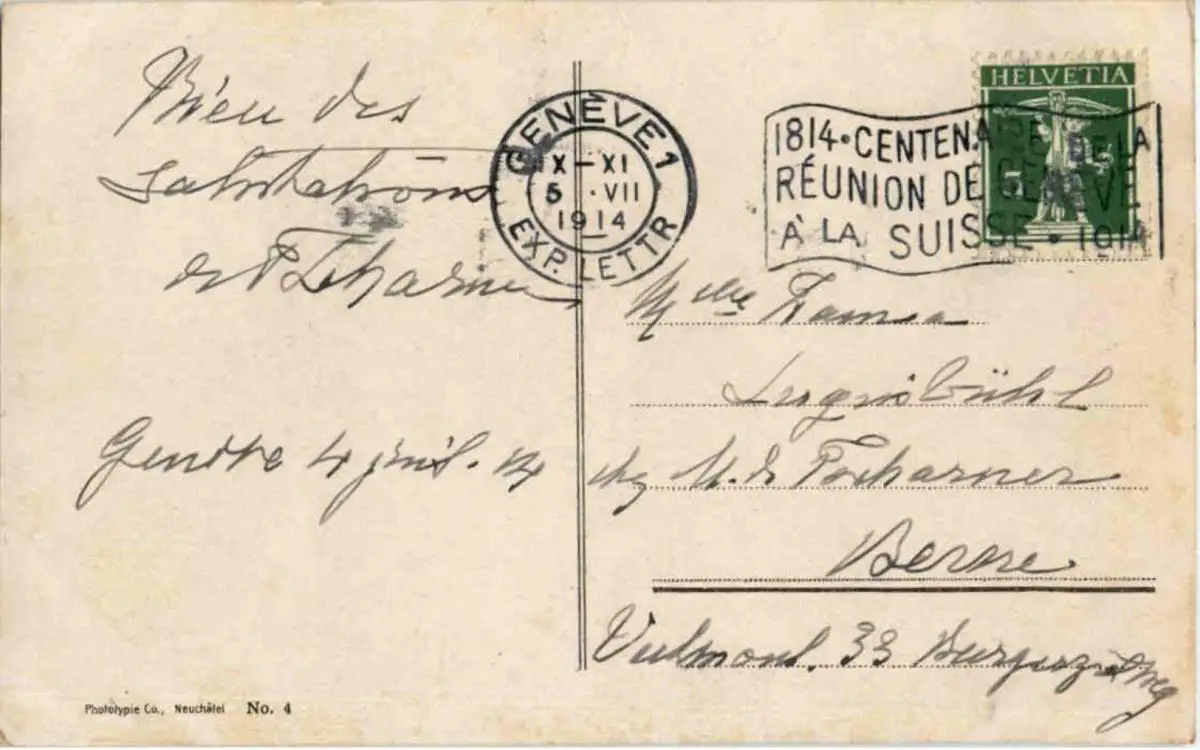 Bien des
salutations
de P. Tscharner
Genève 4 juil. 14
Phototypie Co., Neuchâtel No. 4
GENÈVE 1
IX-XI
5 VII
1914
EXP. LETTR
1814 • CENTENAIRE DE LA
RÉUNION DE GENÈVE
À LA SUISSE • 1914
HELVETIA
5
Mlle
chez M. de Tscharner
Berne
33 Burgerzielweg